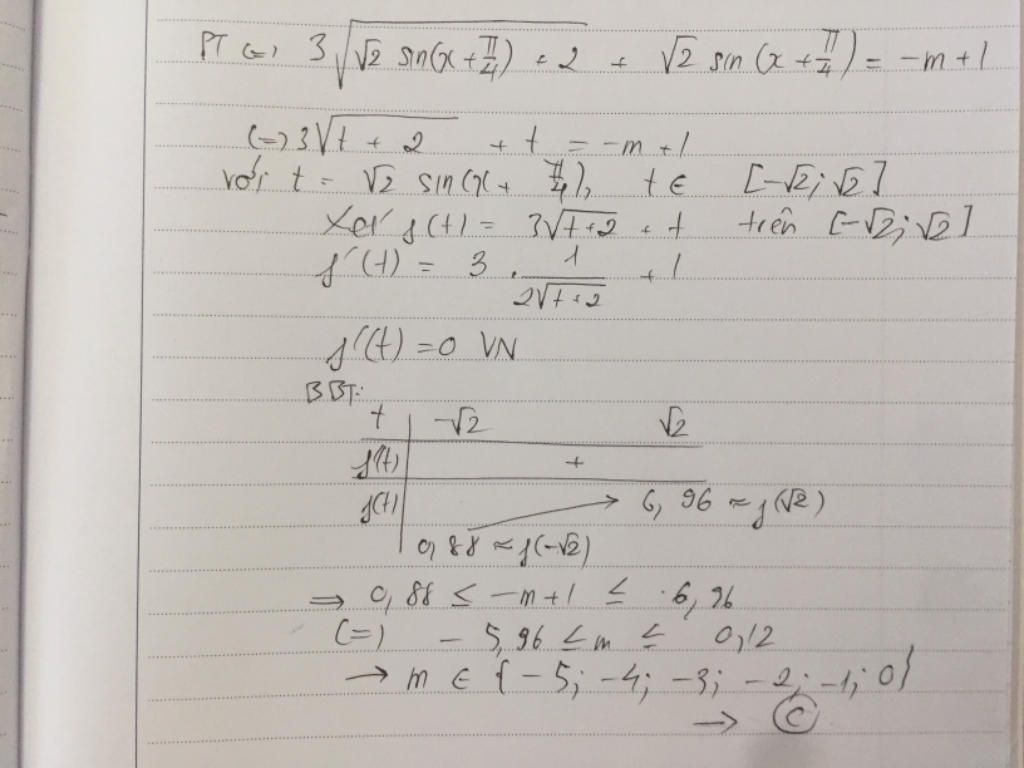 PT (=) 3√(√2 sin(x + π/4) + 2) + √2 sin (x + π/4) = -m + 1
(=) 3√(t + 2) + t = -m + 1
với t = √2 sin(x + π/4), t ∈ [-√2; √2]
Xét f(t) = 3√(t+2) + t trên [-√2; √2]
f'(t) = 3 . 1/(2√(t+2)) + 1
f'(t) = 0 VN
BBT:
t -√2 √2
f'(t) +
f(t) → 6,96 ≈ f(√2)
0,88 ≈ f(-√2)
⇒ 0,88 ≤ -m+1 ≤ 6,96
(=) - 5,96 ≤ m ≤ 0,12
→ m ∈ {-5; -4; -3; -2; -1; 0}
→ Ⓒ